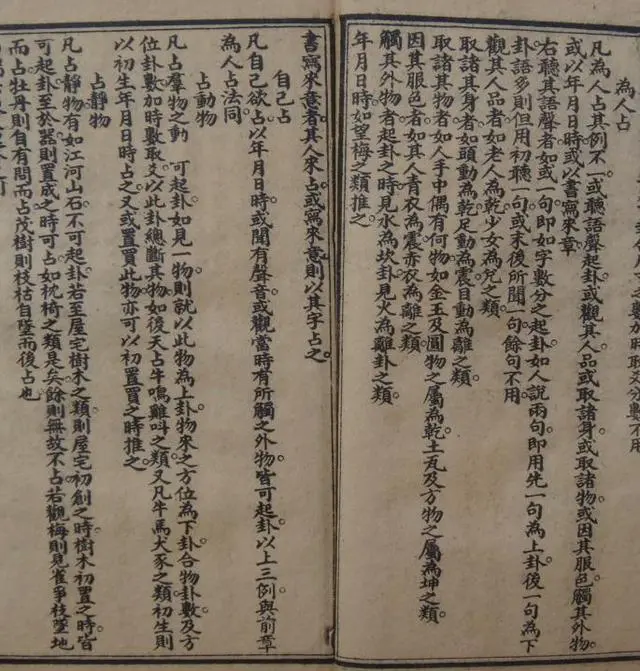 為人占
凡為人占其例不一或聽語聲起卦或觀其人品或取諸身或取諸物或因其服色觸其外物
或以年月日時或以書寫來章
右聽其語聲者如或一句即如字數分之起卦如人說兩句即用先一句為上卦後一句為下
卦語多則但用初聽一句或末後所聞一句餘句不用
觀其人品者如老人為乾少女為兌之類
取諸其身者如頭動為乾足動為震目動為離之類
取諸其物者如人手中偶有何物如金玉及圓物之屬為乾土瓦及方物之屬為坤之類
因其服色者如其人青衣為震赤衣為離之類
觸其外物者起卦之時見水為坎卦見火為離卦之類
年月日時如望梅之類推之
書寫來意者其人來占或寫來意則以其字占之
自己占
凡自己欲占以年月日時或聞有聲音或觀當時有所觸之外物皆可起卦以上三例與前章
為人占法同
占動物
凡占群物之動 可起卦如見一物則就以此物為上卦物來之方位為下卦合物卦數及方
位卦數加時數取爻以此卦總斷其物如後天占牛鳴雞叫之類又凡牛馬犬豕之類初生則
以初生年月日時占之又或置買此物亦可以初置買之時推之
占靜物
凡占靜物有如江河山石不可起卦若至屋宅樹木之類則屋宅初創之時樹木初置之時皆
可起卦至於器則置成之時可占如枕椅之類是矣餘則無故不占若觀梅則見雀爭枝墜地
而占牡丹則自有問而占茂樹則枝枯自墜而後占也